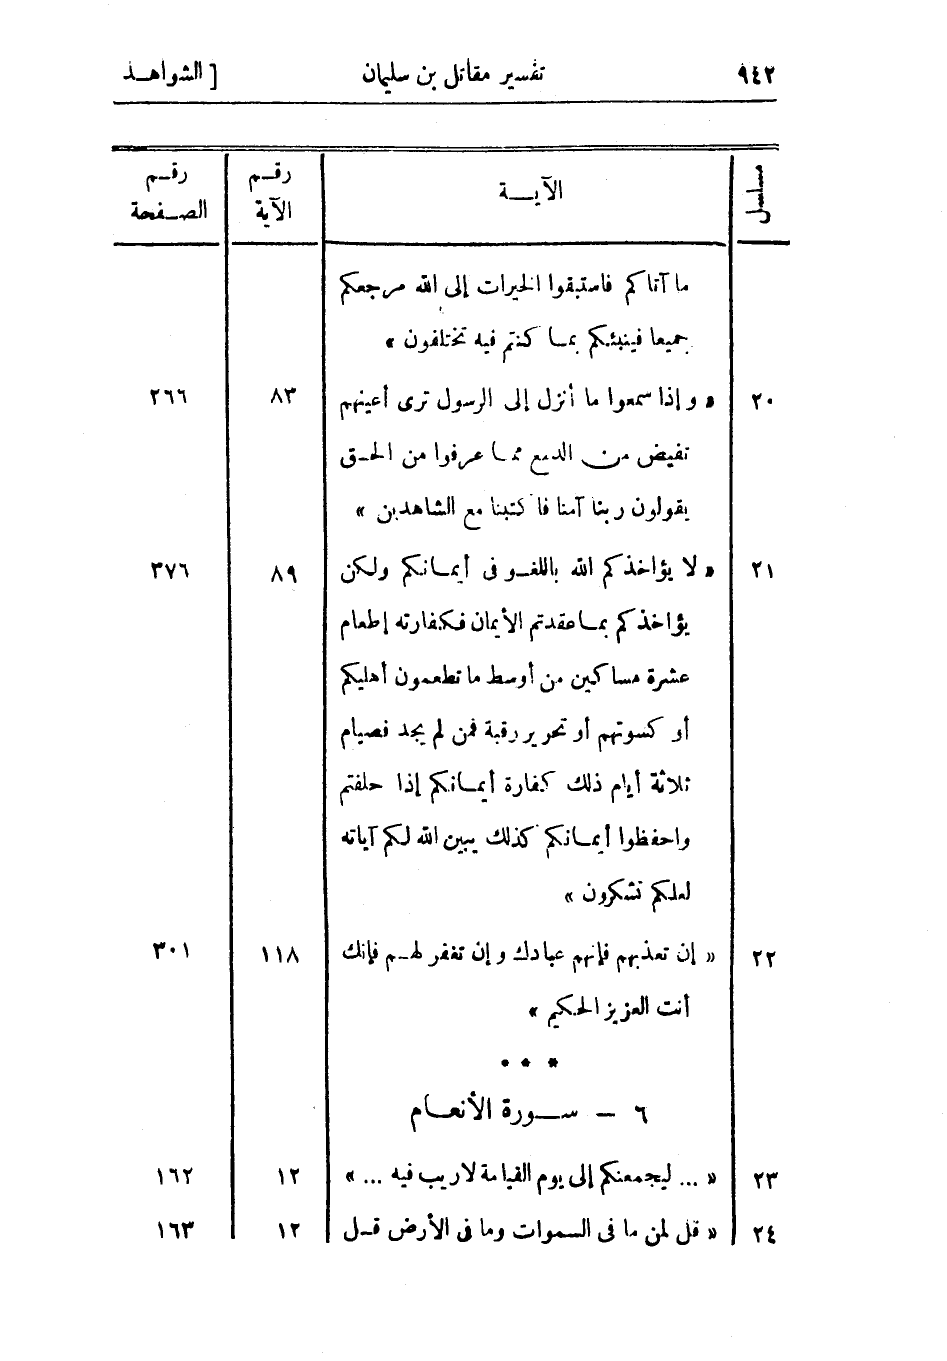 ٩٤٢ تفسير مقاتل بن سليمان [ الشواهد
مسلسل الآية رقم الآية رقم الصفحة
ما آتاكم فاستبقوا الخيرات إلى الله مرجعكم
جميعا فينبئكم بما كنتم فيه تختلفون »
٢٠ « وإذا سمعوا ما أنزل إلى الرسول ترى أعينهم ٨٣ ٢٦٦
تفيض من الدمع مما عرفوا من الحق
يقولون ربنا آمنا فاكتبنا مع الشاهدين »
٢١ « لا يؤاخذكم الله باللغو فى أيمانكم ولكن ٨٩ ٣٧٦
يؤاخذكم بما عقدتم الأيمان فكفارته إطعام
عشرة مساكين من أوسط ما تطعمون أهليكم
أو كسوتهم أو تحرير رقبة فمن لم يجد فصيام
ثلاثة أيام ذلك كفارة أيمانكم إذا حلفتم
واحفظوا أيمانكم كذلك يبين الله لكم آياته
لعلكم تشكرون »
٢٢ « إن تعذبهم فإنهم عبادك وإن تغفر لهم فإنك ١١٨ ٣٠١
أنت العزيز الحكيم »
* * *
٦ – سورة الأنعام
٢٣ « ... ليجمعنكم إلى يوم القيامة لاريب فيه ... » ١٢ ١٦٢
٢٤ « قل لمن ما فى السموات وما فى الأرض قل ١٢ ١٦٣